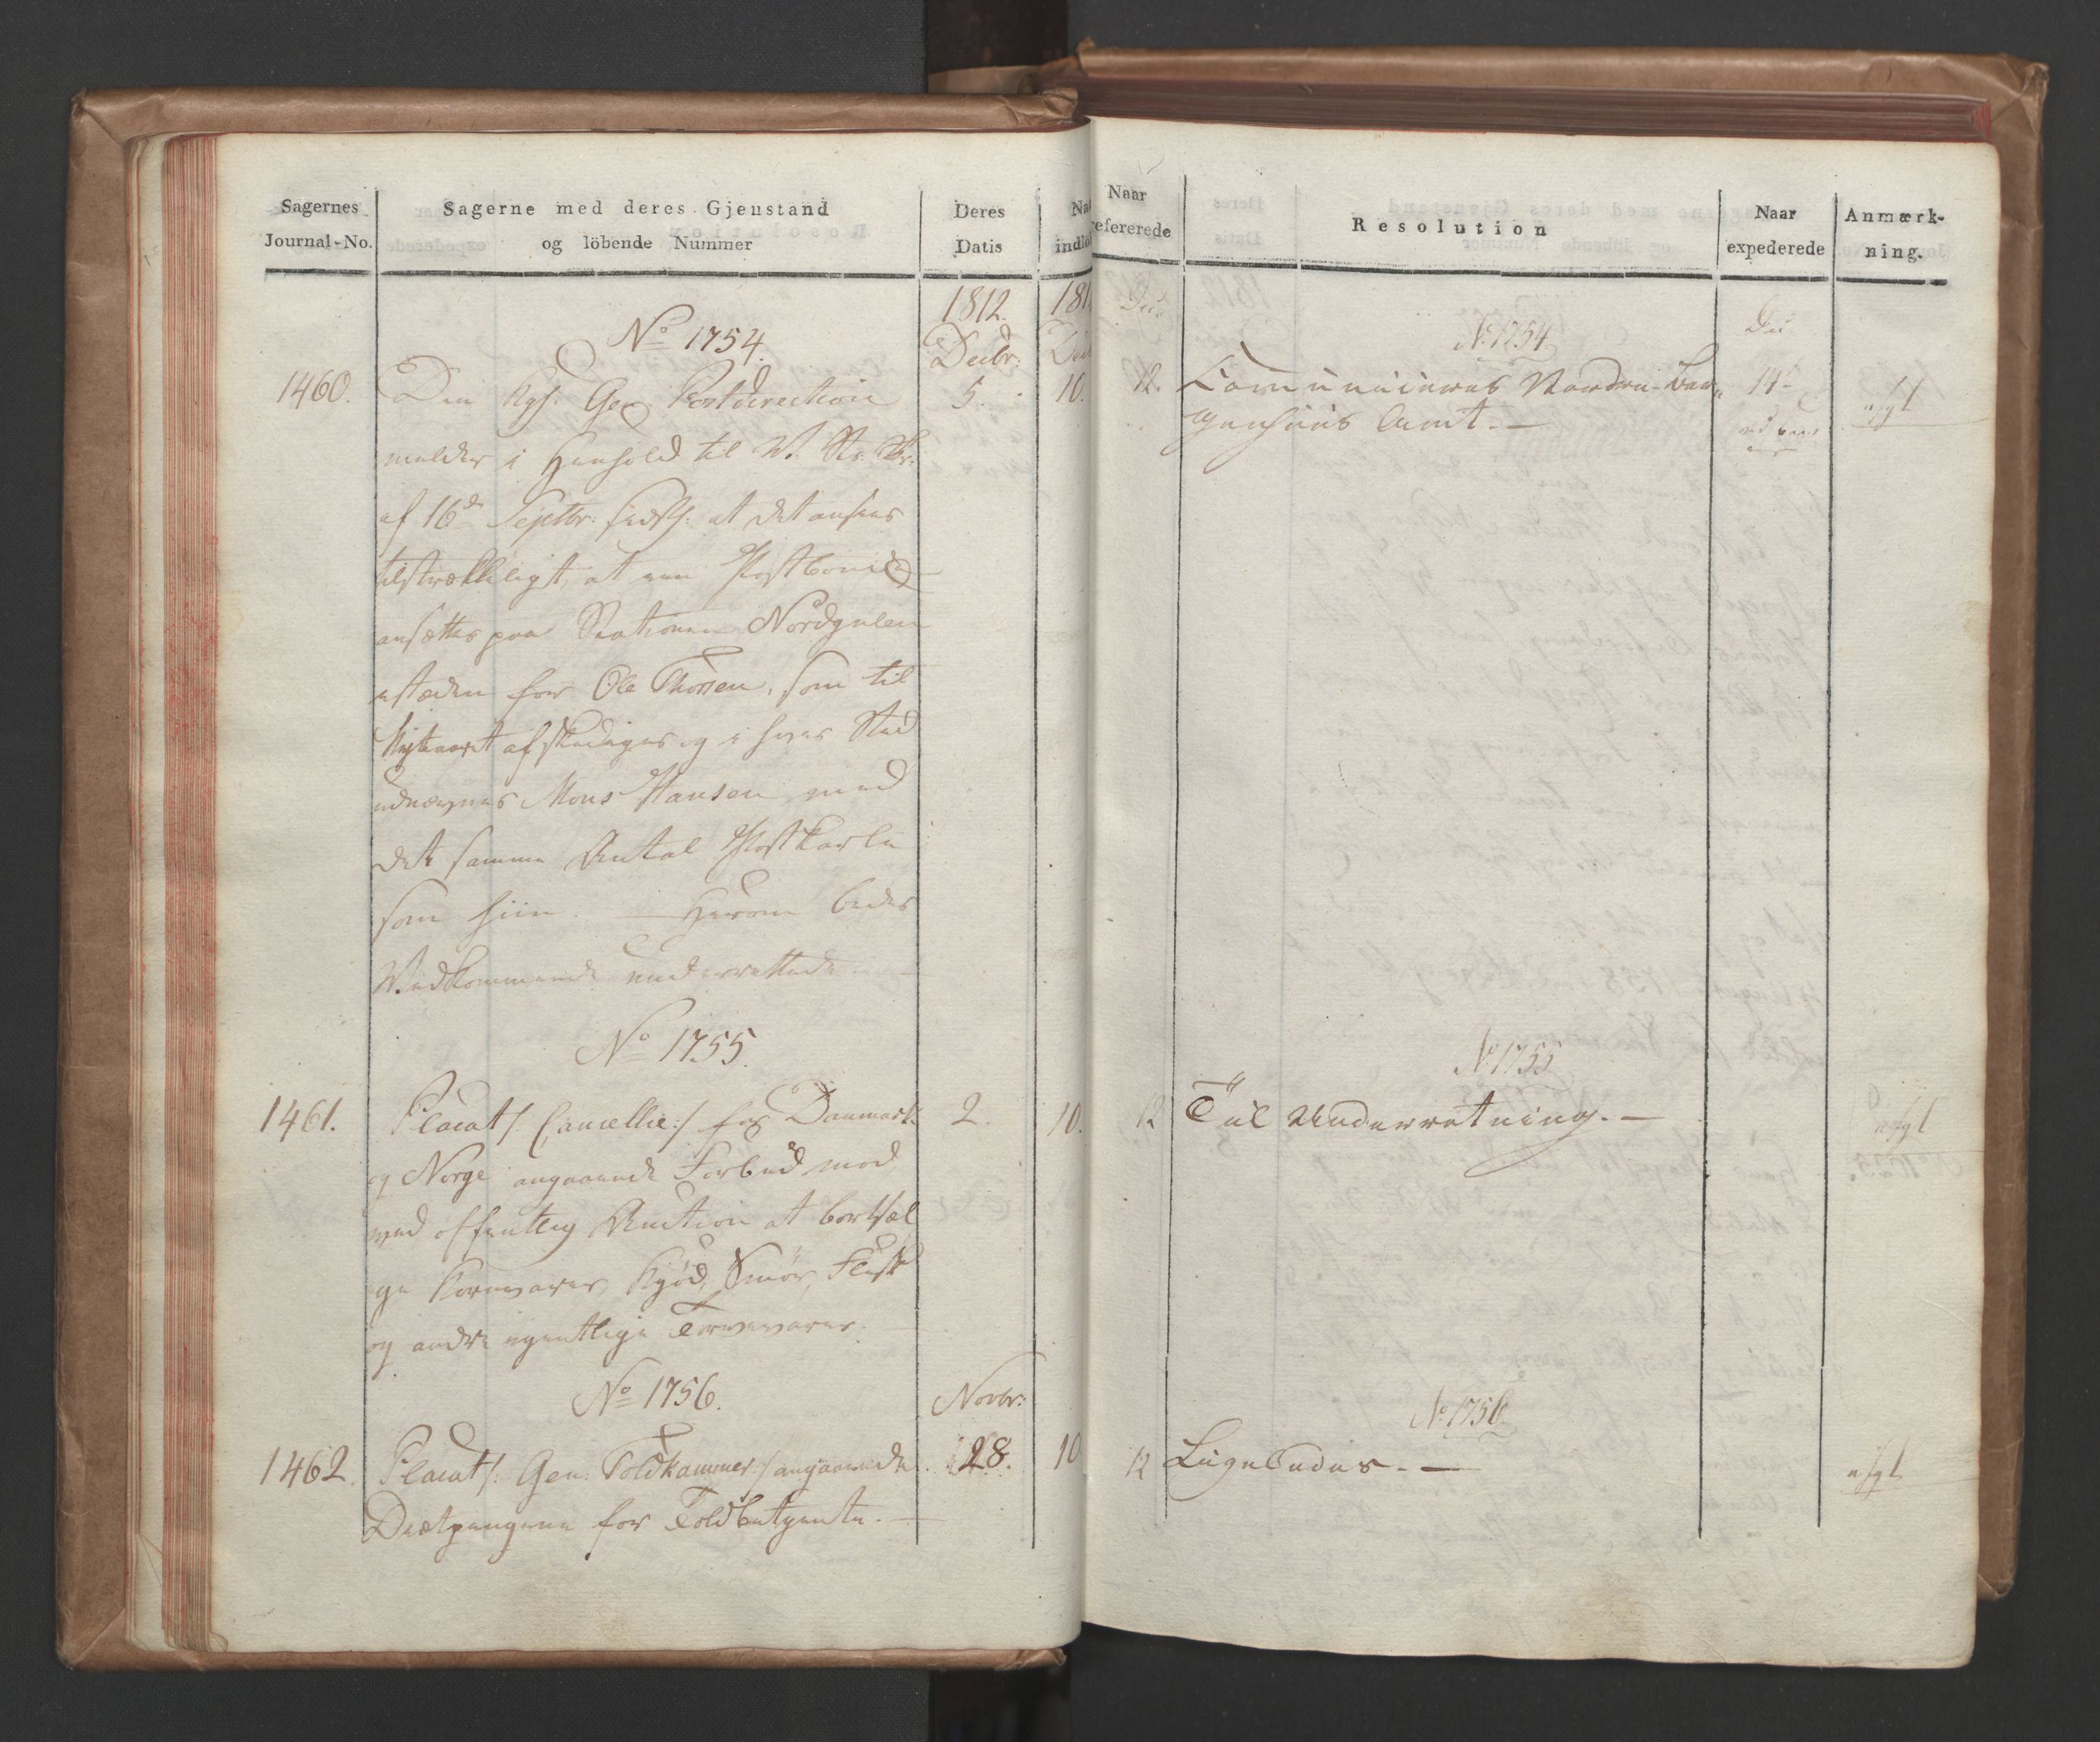 Sagernes
Journal-No.
Sagerne med deres Gjenstand
og löbende Nummer
Deres
Datis
Naar
indlo
1812.
Decbr:
No 1754.
1460.
Den Kgl. Gen. Postdirection
5.
10.
melder i Henhold til
af 16de Septbr: sidstl: at det ansees
tilstrækkeligt, at een Postbonde
ansættes paa Stationen Nordgulen
istæden for Ole Thorsen, som til
Nytaaret afskediges og i hvis Sted
udnævnes Mons Hansen med
det samme Antal Postkarle
som hiin. — Herom bedes
Vedkommende underrettede
No 1755.
1461.
Placat /: Cancellie :/ for Danmark
2.
10.
og Norge angaaende Forbud mod
ved offentlig Auction at bortsæl
ge Kornvarer, Kjød, Smör, Flesk
og andre egentlige Torvevarer.
No 1756.
Novbr:
1462.
Placat /: Gen: Toldkammer :/ angaaende
28.
10
Diætpengene for Toldbetjente. —
Naar
refererede
Resolution
Naar
expederede
Anmærk-
ning.
No 1754
12.
Communiceres Nordre Ber„
14
afgl
genhuus Amt. —
No 1755
12
Til Underretning. —
afgl
No 1756.
12
Ligeledes. —
afgl